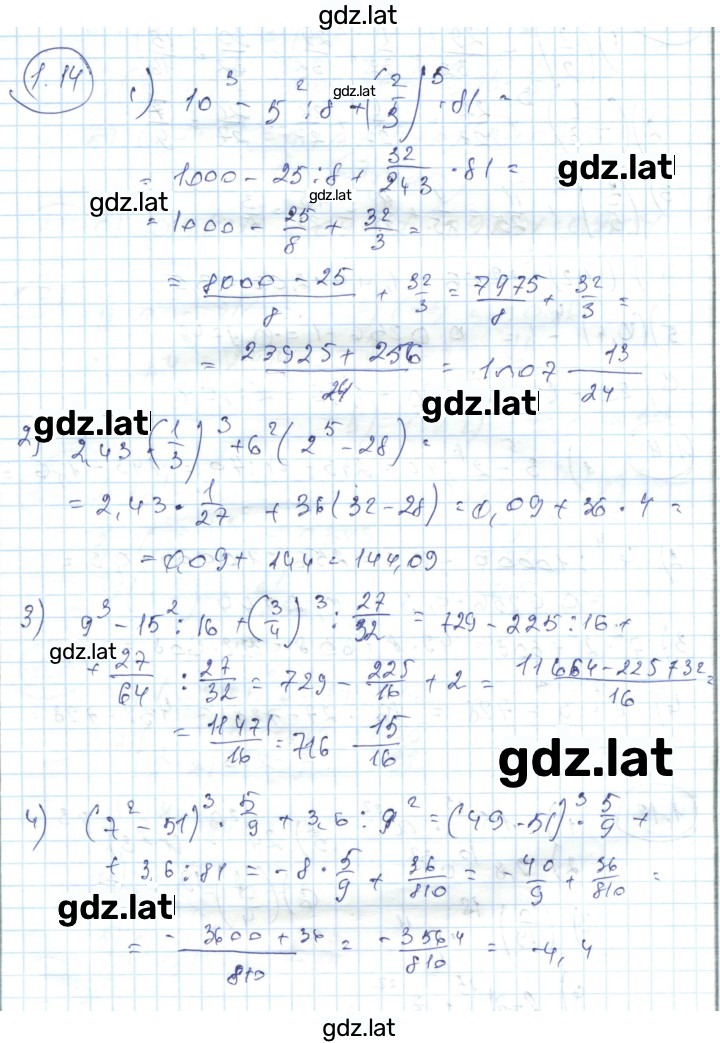 gdz.lat
1.14
1) 10³ - 5² : 8 + (2/3)⁵ · 81 =
gdz.lat
= 1000 - 25 : 8 + 32/243 · 81 =
gdz.lat
gdz.lat
= 1000 - 25/8 + 32/3 =
= (8000 - 25)/8 + 32/3 = 7975/8 + 32/3 =
= (23925 + 256)/24 = 1007 13/24
gdz.lat
gdz.lat
2) 2,43 · (1/3)³ + 6² (2⁵ - 28) =
= 2,43 · 1/27 + 36 (32 - 28) = 0,09 + 36 · 4 =
= 0,09 + 144 = 144,09
3) 9³ - 15² : 16 + (3/4)³ : 27/32 = 729 - 225 : 16 +
gdz.lat
+ 27/64 : 27/32 = 729 - 225/16 + 2 = (11664 - 225 + 32)/16 =
= 11471/16 = 716 15/16
gdz.lat
4) (7² - 51)³ · 5/9 + 3,6 : 9² = (49 - 51)³ · 5/9 +
+ 3,6 : 81 = -8 · 5/9 + 36/810 = - 40/9 + 36/810 =
gdz.lat
= (- 3600 + 36)/810 = - 3564/810 = -4,4
gdz.lat